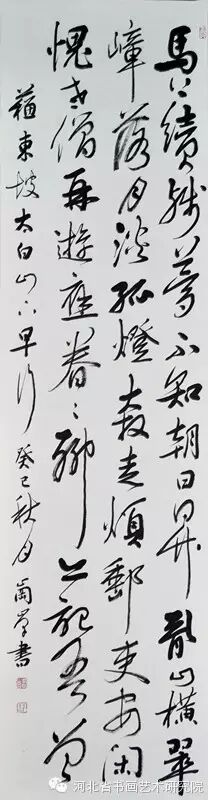 馬上續殘夢不知朝日昇亂山橫翠
嶂落月淡孤燈奔走煩郵吏安閑
愧老僧再遊應眷々聊亦記吾曾
蘓東坡太白山下早行 癸巳秋月 書
河北省书画艺术研究院